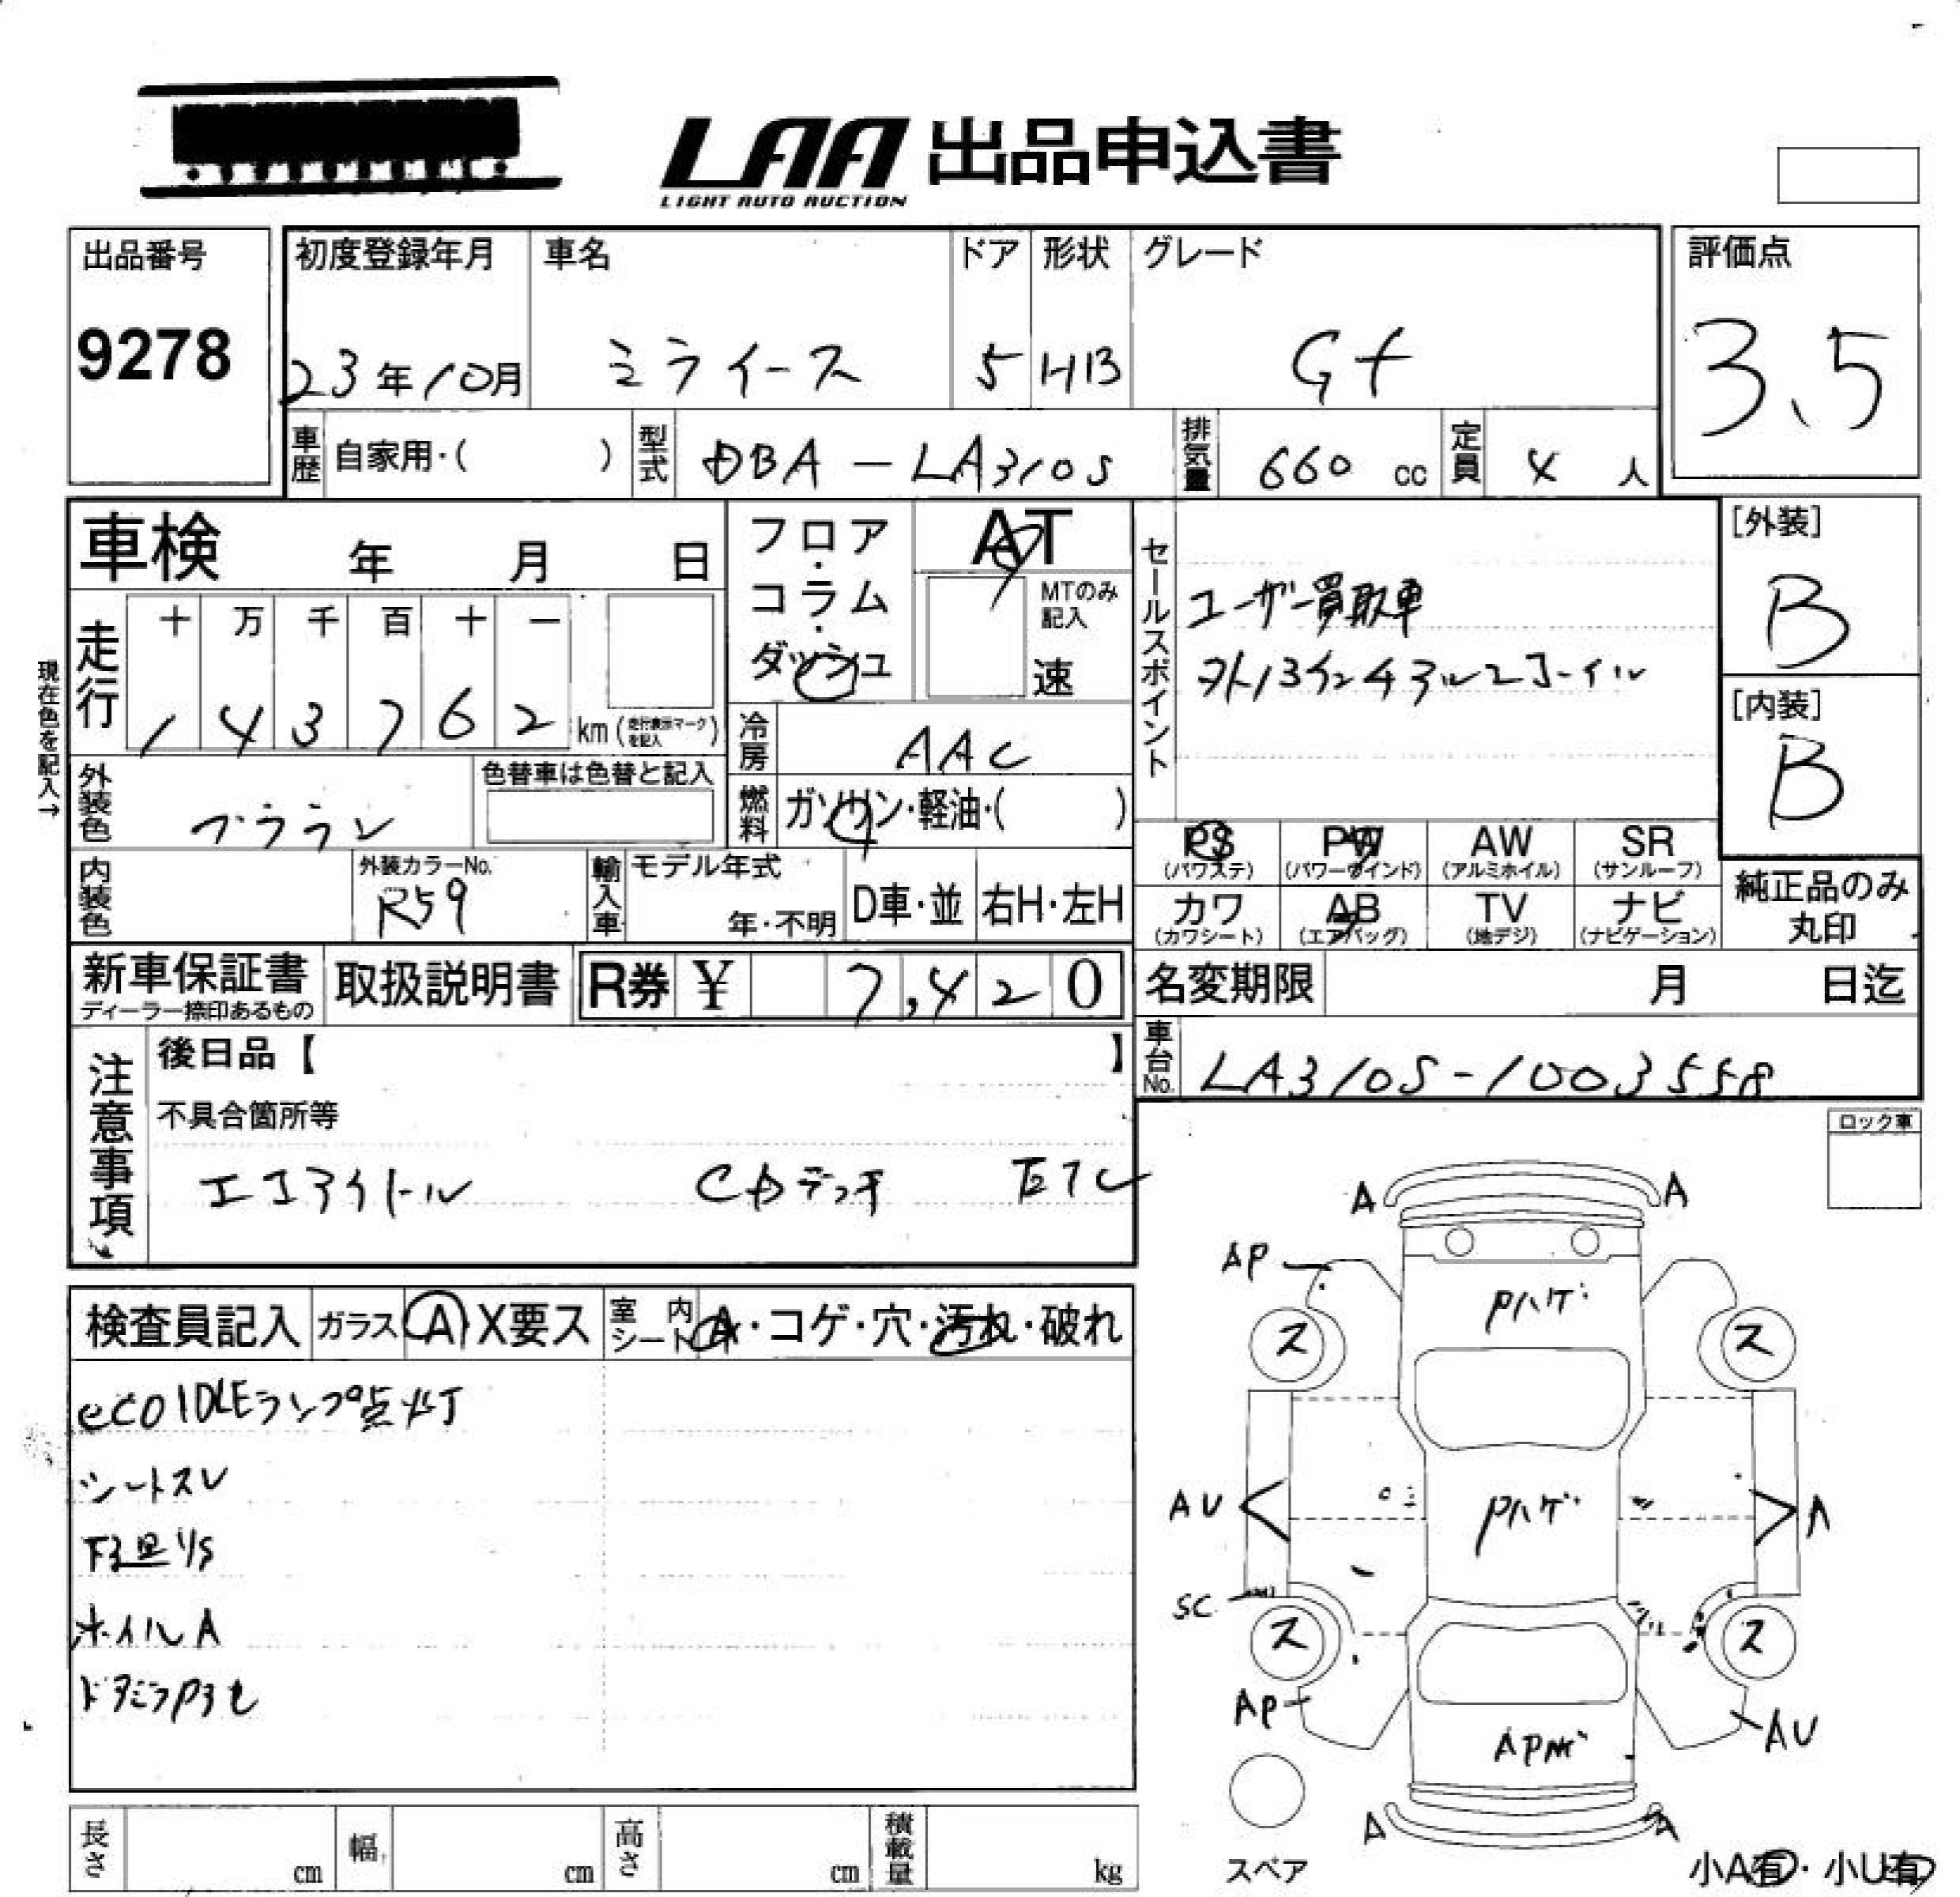 LAA 出品申込書
LIGHT AUTO AUCTION
出品番号
9278
初度登録年月
23年10月
車名
ミライース
ドア
5
形状
HB
グレード
G+
評価点
3.5
車歴 自家用・( )
型式 DBA-LA310S
排気量 660 cc
定員 4 人
車検 年 月 日
走行 十 万 千 百 十 一
1 4 3 7 6 2 km (走行表示マークを記入)
現在色を記入→
外装色 ブラウン
色替車は色替と記入
内装色
外装カラーNo.
R59
輸入車 モデル年式
年・不明
D車・並
右H・左H
フロア・コラム・ダッシュ
AT
MTのみ記入
速
冷房 AAC
燃料 ガソリン・軽油・( )
セールスポイント
ユーザー買取車
[外装]
B
[内装]
B
PS (パワステ)
PW (パワーウインド)
AW (アルミホイル)
SR (サンルーフ)
カワ (カワシート)
AB (エアバッグ)
TV (地デジ)
ナビ (ナビゲーション)
純正品のみ丸印
新車保証書
ディーラー捺印あるもの
取扱説明書
R券 ¥ 7,420
名変期限 月 日迄
車台No. LA310S-1003558
注意事項
後日品【 】
不具合箇所等
エコアイドル CDデッキ ETC
ロック車
検査員記入
ガラス A X要ス
室内シート A・コゲ・穴・汚れ・破れ
eCO IDLEランプ点灯
シートスレ
下廻りS
ホイルA
A
A
AP
Pハゲ
ス
ス
AU
Pハゲ
A
SC
ス
ス
AP
AU
A
A
スペア
小A有・小U有
長さ cm
幅 cm
高さ cm
積載量 kg